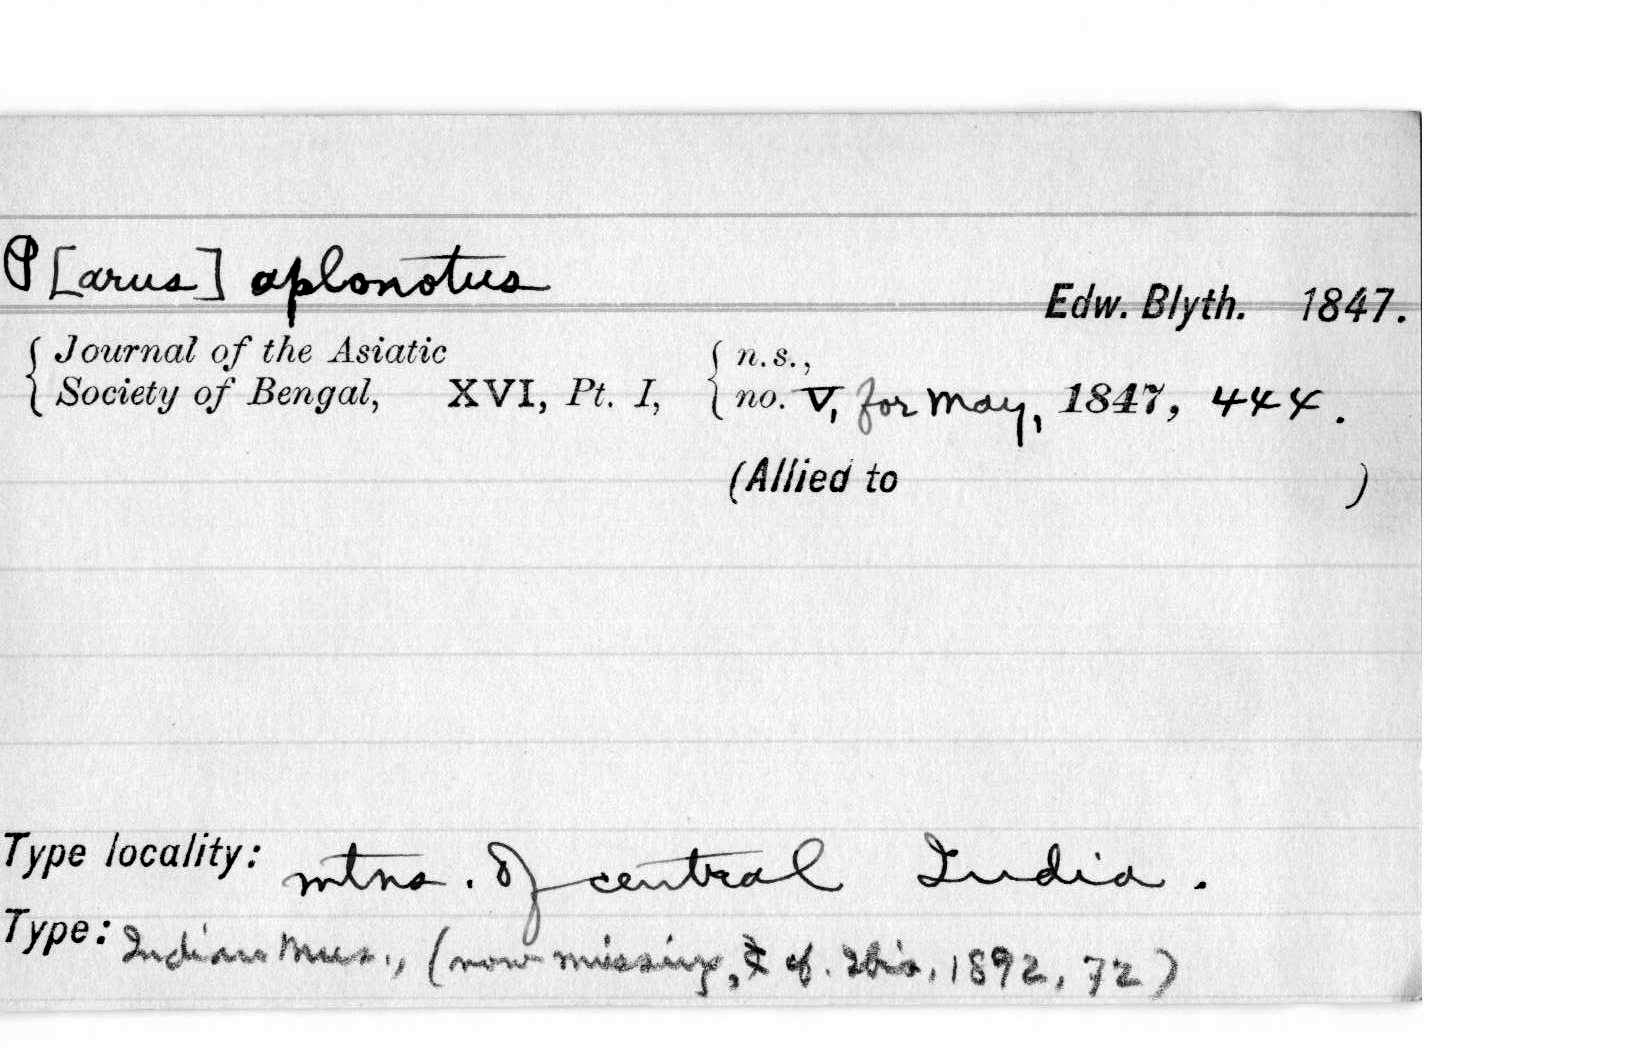 P[arus] aplonotus
Edw. Blyth. 1847.
Journal of the Asiatic
Society of Bengal, XVI, Pt. I,
n.s.,
no. V, for May, 1847, 444.
(Allied to )
Type locality: mtns. of central India.
Type: Indian Mus., (now missing, cf. Ibis, 1892, 72)